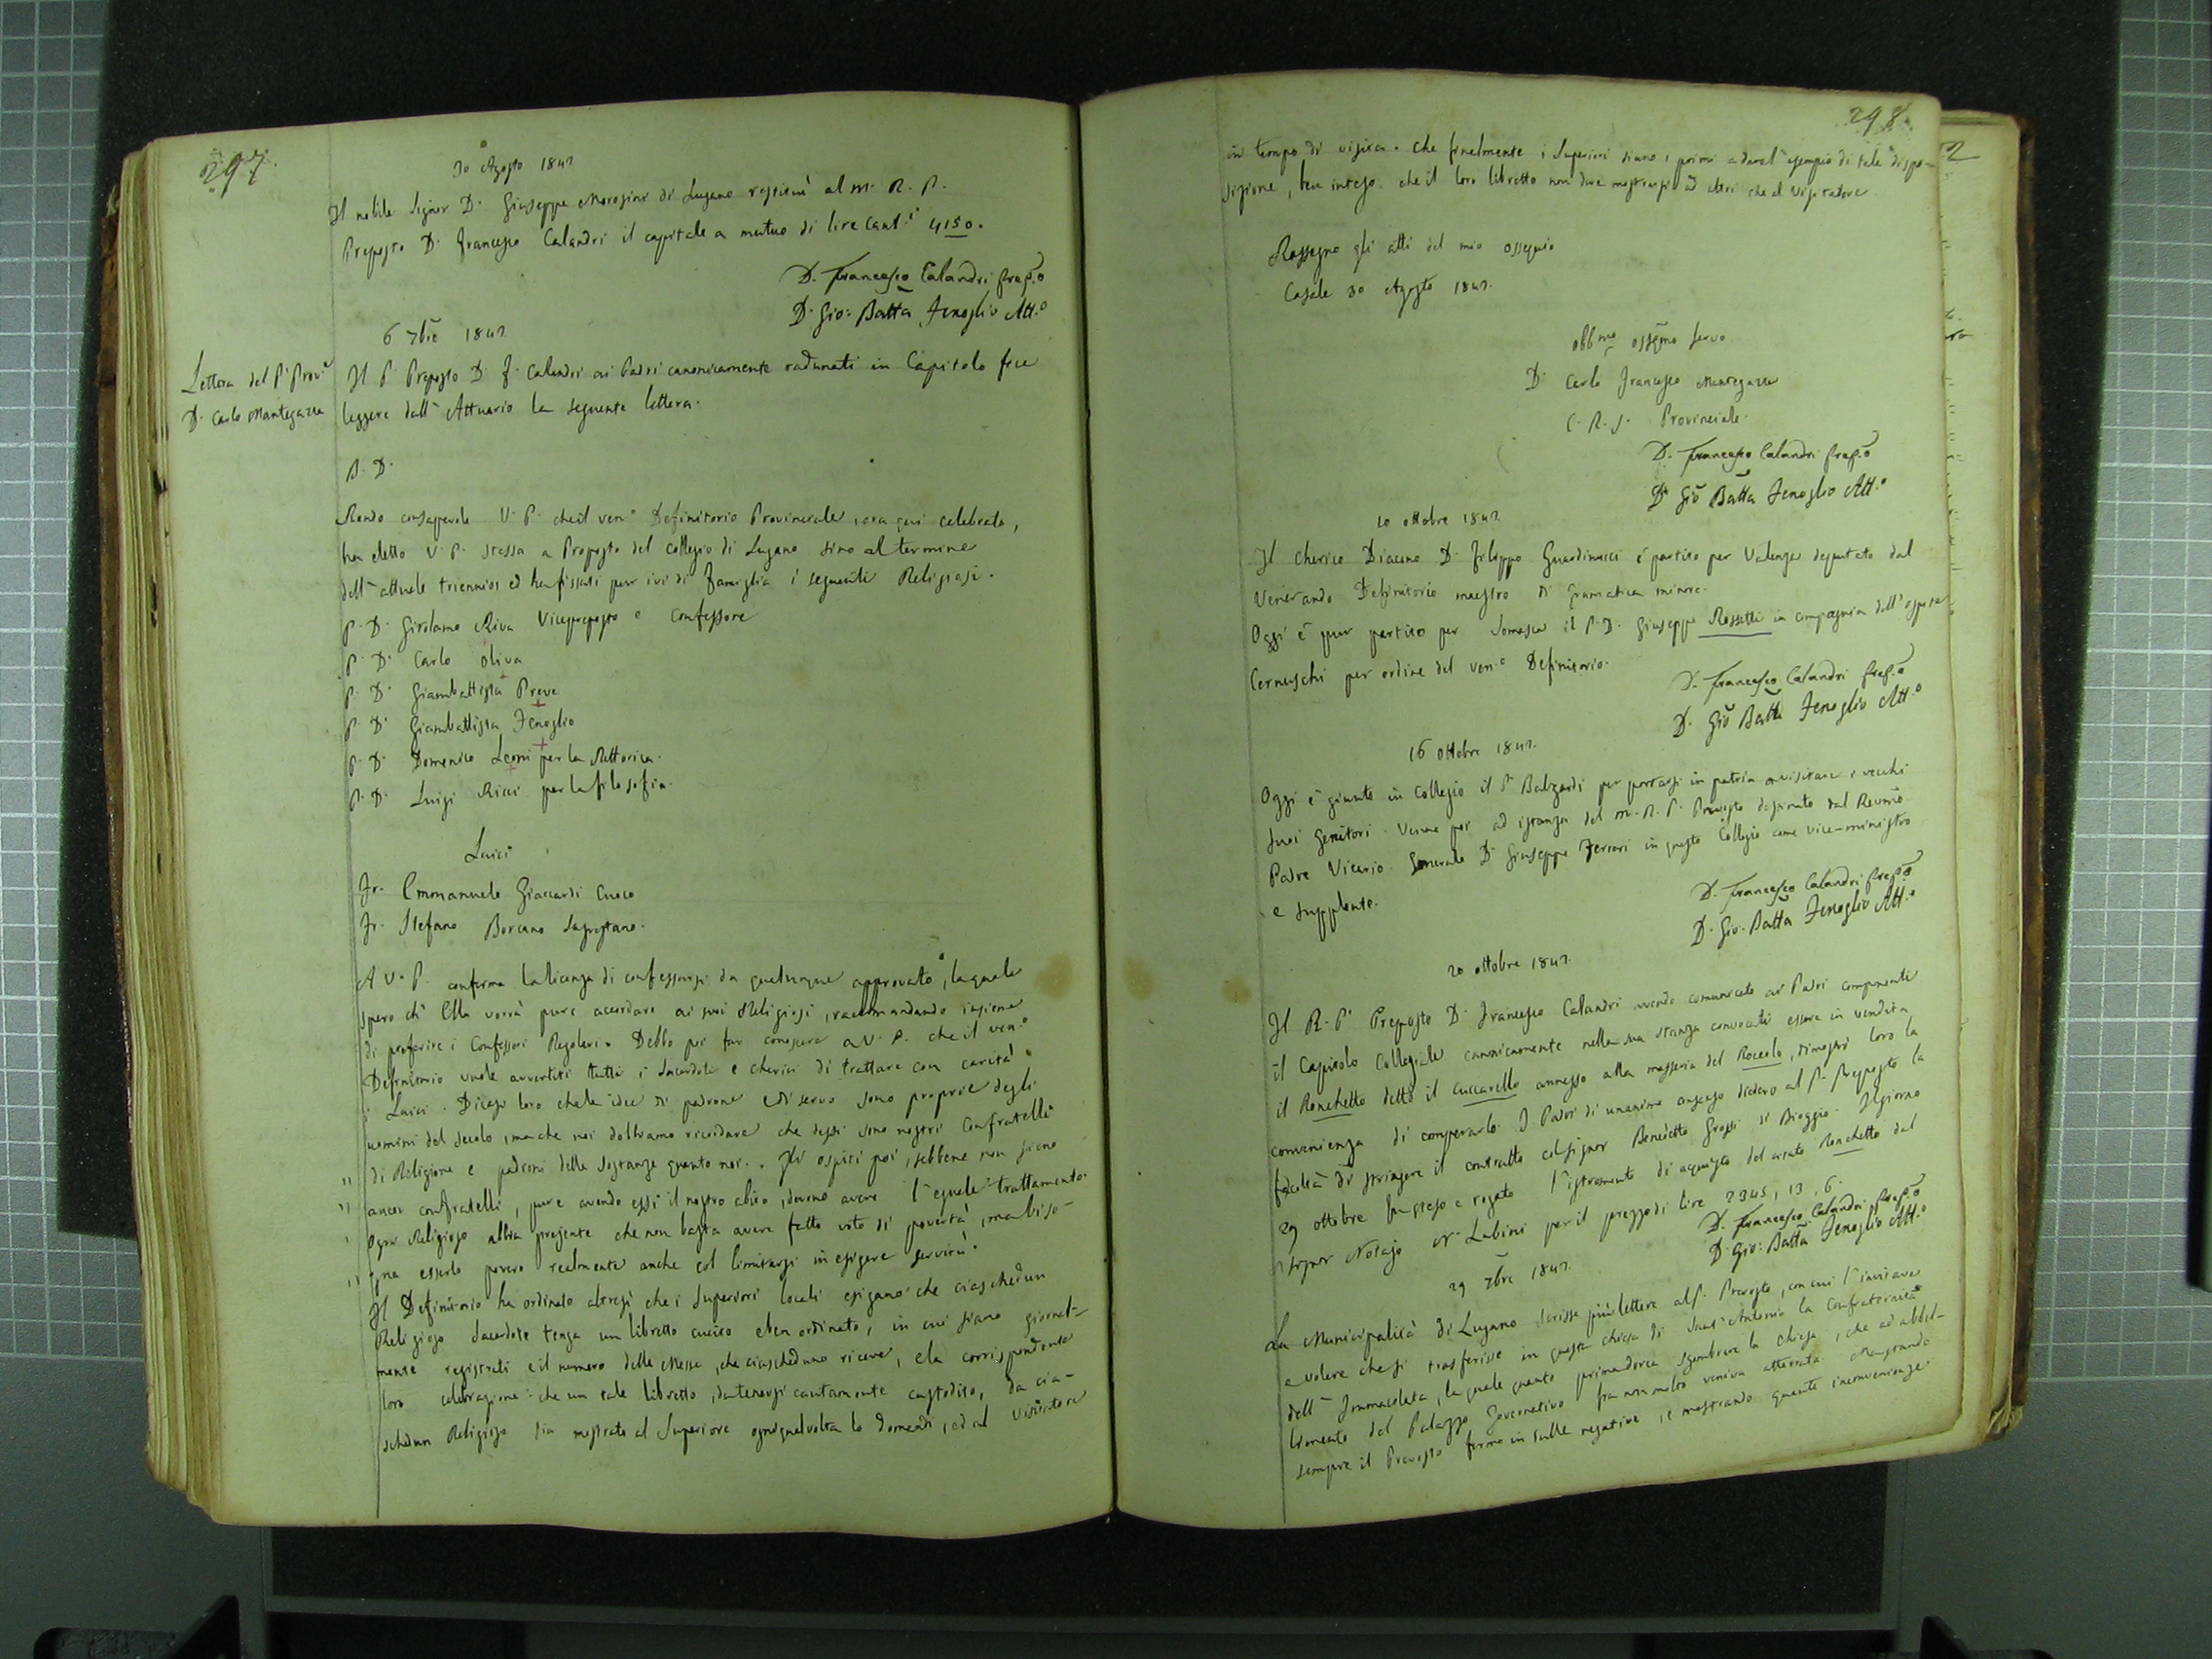 297.
30 Agosto 1842
Il nobile Signor D. Giuseppe Morosini di Lugano restituì al M. R. P.
Preposto D. Francesco Calandri il capitale a mutuo di lire Cant.i 4150.
D. Francesco Calandri Prep.o
D. Gio: Batta Fenoglio Att.o
6 7bre 1842
Lettera del P. Prov.e
D. Carlo Mantegazza
Il P. Preposto D. F. Calandri ai Padri canonicamente radunati in Capitolo fece
leggere dall'Attuario la seguente lettera.
B. D.
Rendo consapevole V. P. che il ven.o Definitorio Provinciale, ora qui celebrato,
ha eletto V. P. stessa a Preposto del Collegio di Lugano sino al termine
dell'attuale triennio, ed ha fissati pur ivi di famiglia i seguenti Religiosi.
P. D. Girolamo Riva Vicepreposto e Confessore
P. D. Carlo Oliva
P. D. Giambattista Preve
P. D. Giambattista Fenoglio
P. D. Domenico Leoni per la Rettorica.
P. D. Luigi Ricci per la filosofia.
Laici
Fr. Emmanuele Giaccardi Cuoco
Fr. Stefano Borcano Sagrestano.
A V. P. conferma la licenza di confessarsi da qualunque approvato, la quale
spero ch'Ella vorrà pure accordare ai suoi Religiosi, raccomandando insieme
di preferire i Confessori Regolari. Debbo poi far conoscere a V. P. che il ven.o
Definitorio vuole avvertiti tutti i Sacerdoti e cherici di trattare con carità
i Laici. Dicasi loro che le idee di padrone e di servo sono proprie degli
uomini del secolo, ma che noi dobbiamo ricordare che dessi sono nostri Confratelli
di Religione e padroni delle sostanze quanto noi. Gli ospiti poi, sebbene non sieno
" ancor confratelli, pure avendo essi il nostro abito, devono avere l'eguale trattamento.
" Ogni Religioso abbia presente che non basta avere fatto voto di povertà, ma biso-
" gna esserlo povero realmente anche col limitarsi in esigere servitù.
Il Definitorio ha ordinato altresì che i Superiori locali esigano che ciaschedun
Religioso Sacerdote tenga un libretto cucito e ben ordinato, in cui siano giornal-
mente registrati e il numero delle Messe, che ciascheduno riceve, e la corrispondente
loro celebrazione: che un tale libretto, da tenersi cautamente custodito, da cia-
schedun Religioso sia mostrato al Superiore ogniqualvolta lo domandi, ed al Visitatore
298.
in tempo di visita. Che finalmente i Superiori siano i primi a dare l'esempio di tale dispo-
sizione, ben inteso che il loro libretto non deve mostrarsi ad altri che al Visitatore.
Rassegno gli atti del mio ossequio
Casale 30 Agosto 1842.
obb.mo osseq.mo servo
D. Carlo Francesco Mantegazza
C. R. S. Provinciale.
D. Francesco Calandri Prep.o
D. Gio Batta Fenoglio Att.o
10 ottobre 1842
Il Cherico Diacono D. Filippo Guardinucci è partito per Valenza deputato dal
Venerando Definitorio maestro di gramatica minore.
Oggi è pur partito per Somasca il P. D. Giuseppe Rossetti in compagnia dell'ospite
Cernuschi per ordine del ven.o Definitorio.
D. Francesco Calandri Prep.o
D. Gio Batta Fenoglio Att.o
16 ottobre 1842.
Oggi è giunto in Collegio il Balzardi per portarsi in patria a visitare i vecchi
suoi genitori. Venne poi ad istanza del M. R. P. Preposto destinato dal Rev.mo
Padre Vicario Generale D. Giuseppe Ferreri in questo Collegio come vice-ministro
e supplente.
D. Francesco Calandri Prep.o
D. Gio. Batta Fenoglio Att.o
20 ottobre 1842.
Il R. P. Preposto D. Francesco Calandri avendo comunicato ai Padri componenti
il Capitolo Collegiale canonicamente nella sua stanza convocati essere in vendita
il Ronchetto detto il Cuccarello annesso alla masseria del Roccolo, dimostrò loro la
convenienza di comperarlo. I Padri di unanime consenso diedero al P. Preposto la
facoltà di stringere il contratto col signor Benedetto Grossi di Bioggio. Il giorno
29 ottobre fu steso e rogato l'istromento di acquisto del citato Ronchetto dal
signor Notajo N. Lubini per il prezzo di lire 2345, 13, 6.
D. Francesco Calandri Prep.o
D. Gio: Batta Fenoglio Att.o
29 7bre 1842.
La Municipalità di Lugano scrisse più lettere al P. Preposto, con cui l'invitava
a volere che si trasferisse in questa chiesa di Sant'Antonio la Confraternita
dell'Immacolata, la quale quanto prima dovea sgombrare la chiesa, che ad abbel-
limento del Palazzo Governativo fra non molto veniva atterrata. Ma stando
sempre il Preposto fermo in sulla negativa, e mostrando quante inconvenienze
2